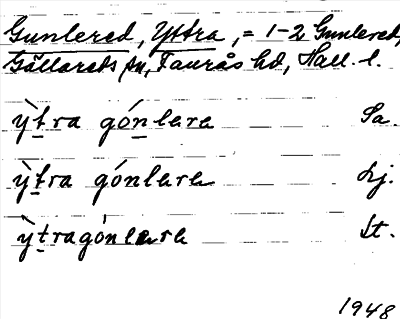 Gunlered, Yttra, = 1-2 Gunlered,
Gällareds sn, Faurås hd, Hall. l.
ỳtra gónlara Sa.
ỳtra gónlara Lj.
ỳtragónlara St.
1948